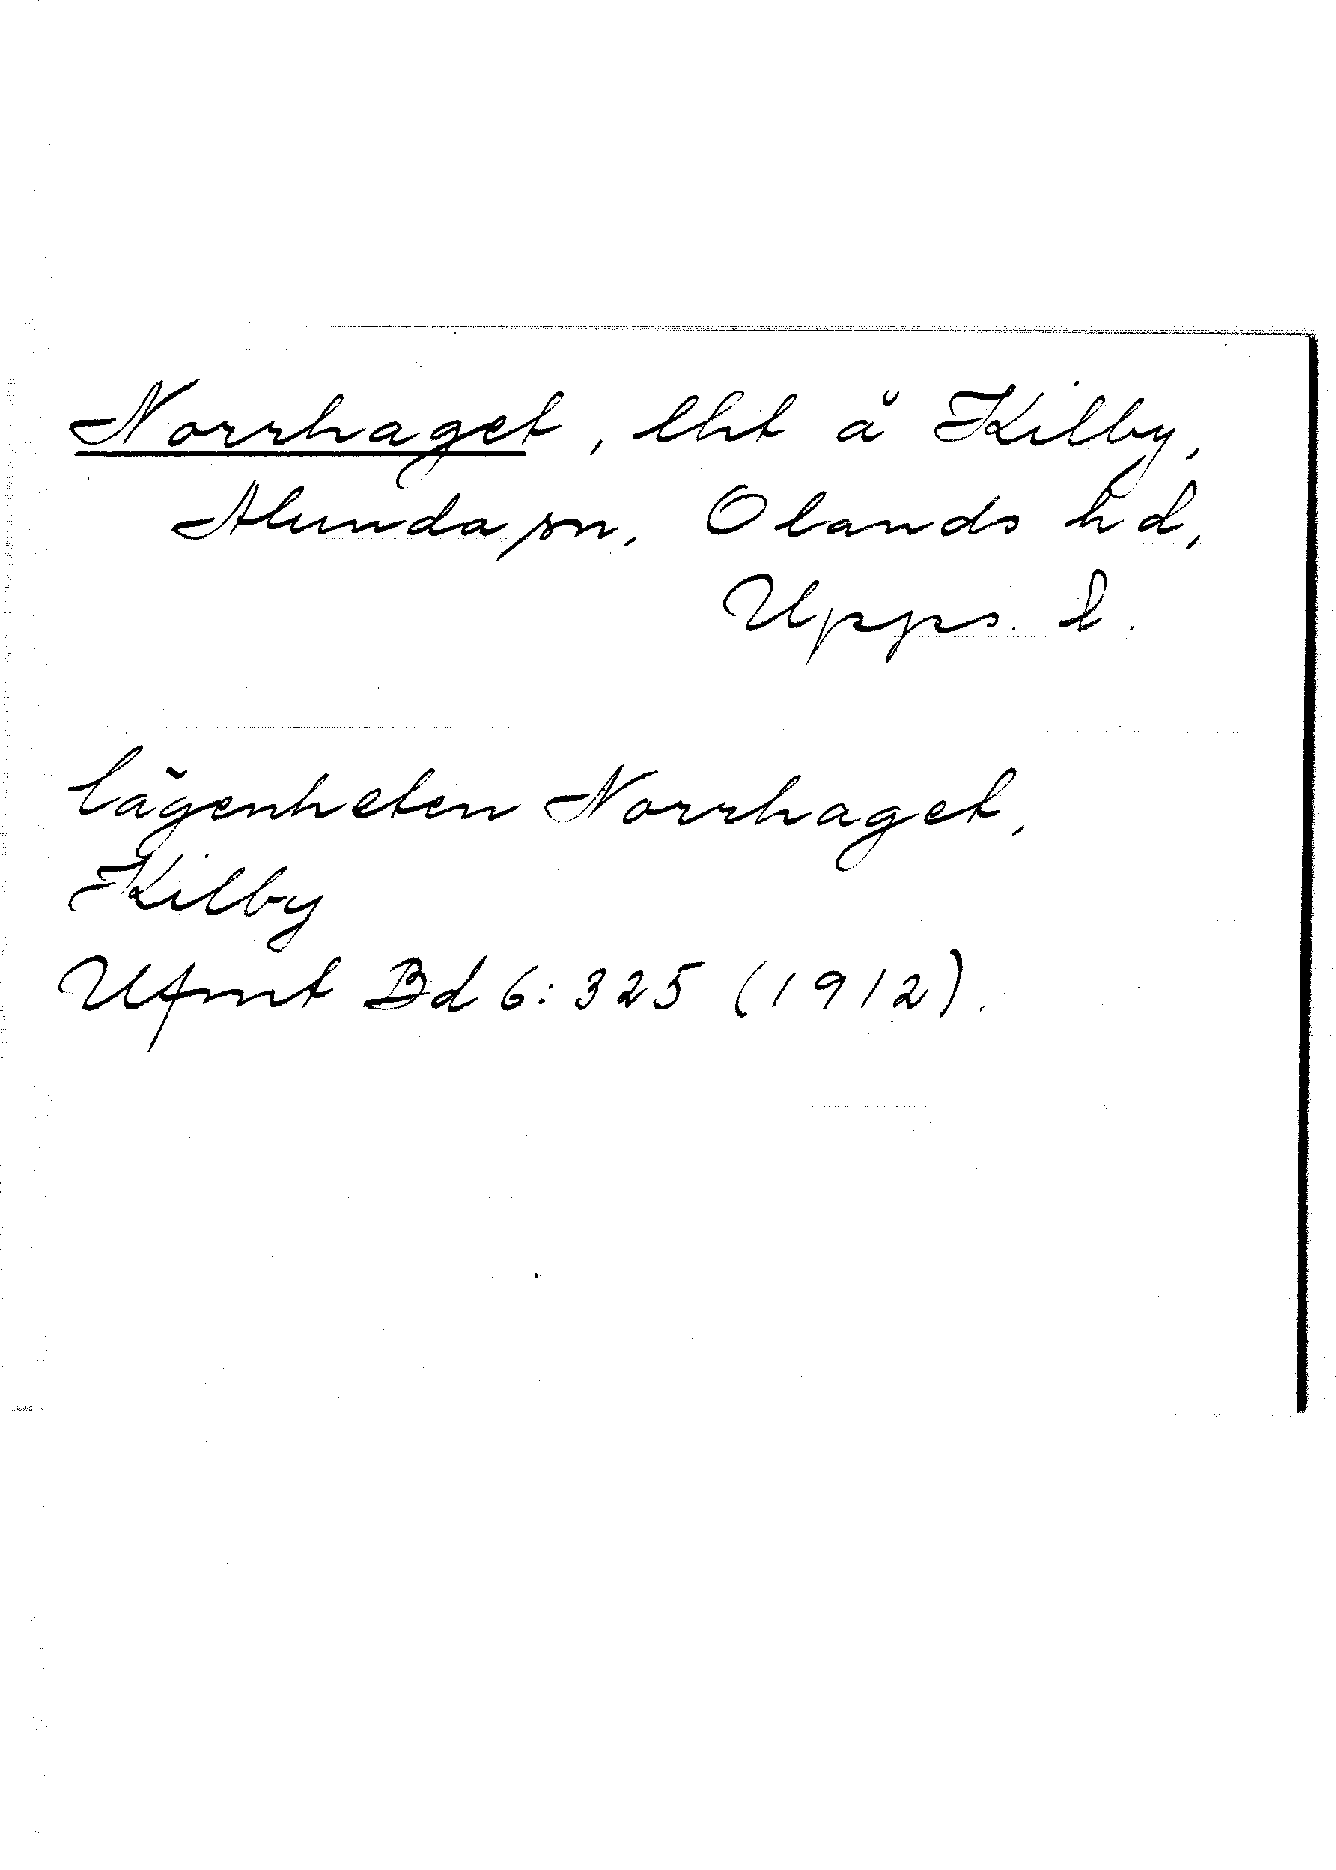 Norrhaget, lht å Kilby,
Alunda sn, Olands hd,
Upps. l.
lägenheten Norrhaget,
Kilby
Ufmt Bd 6:325 (1912).